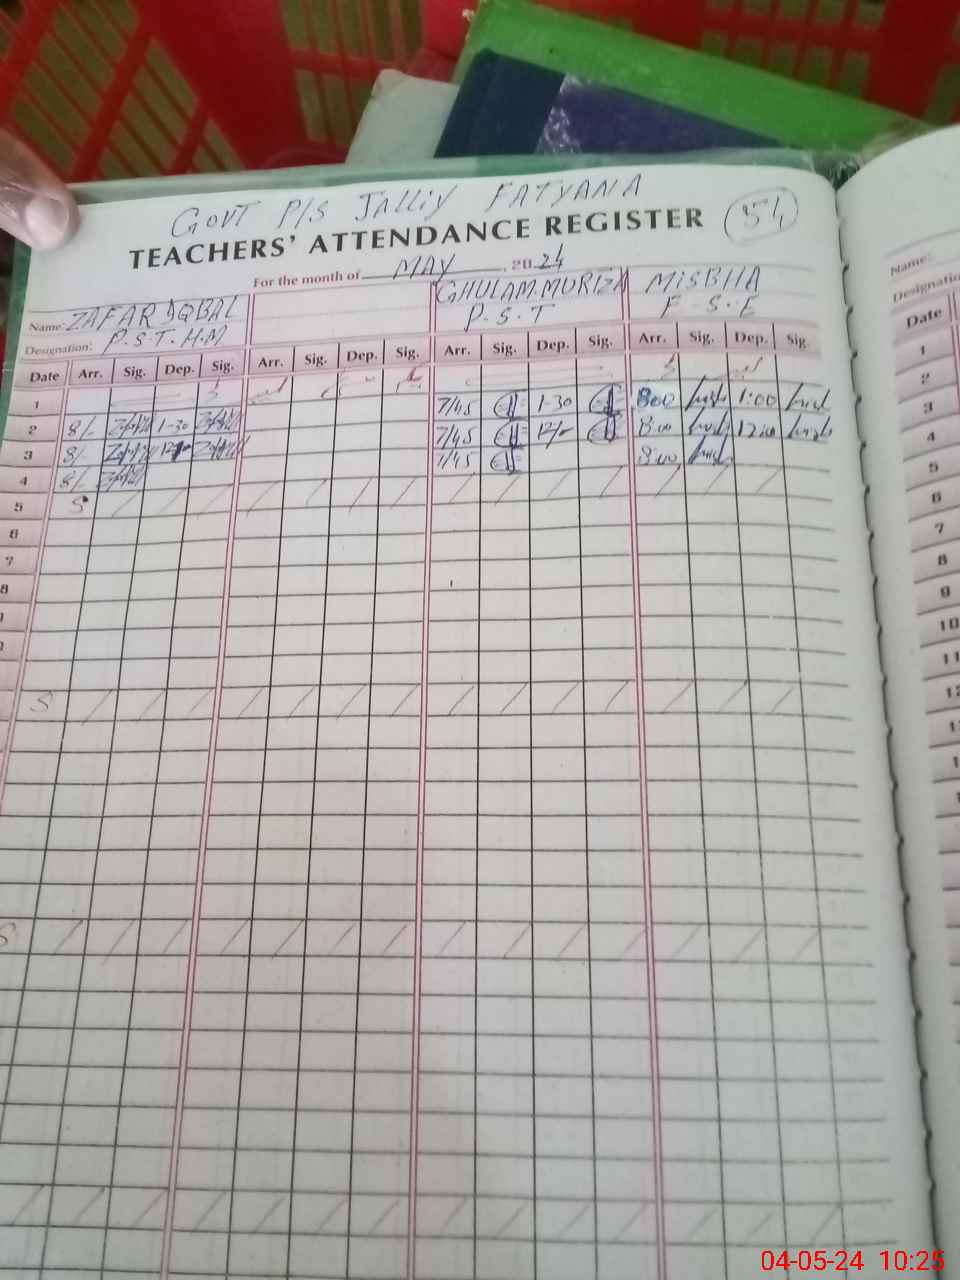 GOVT P/S JALLIY FATYANA
TEACHERS' ATTENDANCE REGISTER
54
For the month of MAY, 2024
Name: ZAFAR IQBAL GHULAM.MURTZA MISBHA
Designation: P.S.T.H.M P.S.T F.S.E
Date Arr. Sig. Dep. Sig. Arr. Sig. Dep. Sig. Arr. Sig. Dep. Sig. Arr. Sig. Dep. Sig.
1
2 8/- 1-30 7/45 1-30 8:00 1:00
3 8/- 12/- 7/45 12/- 8:00 12:00
4 8/- 7/45 8:00
5 S
6
7
8
S
S
Name:
Designation
Date
1
2
3
4
5
6
7
8
9
10
11
12
04-05-24 10:25